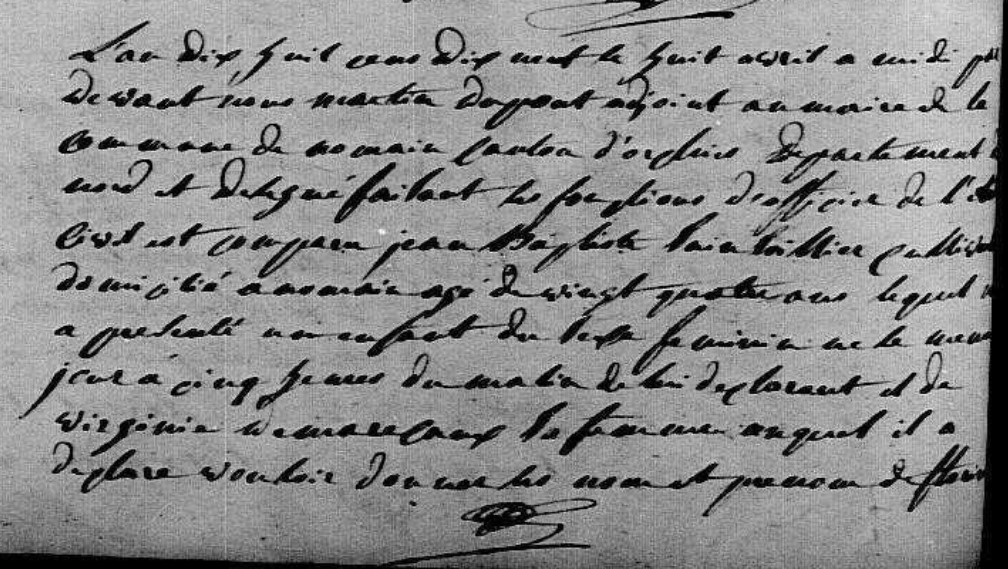 L'an dix huit cens dix neuf le huit avril a midi par
devant nous martin dupont adjoint au maire de la
commune de nomain canton d'orchies departement
nord et delegué faisant les fonctions d'officier de l'état
Civil est comparu jean Baptiste
domicilié a nomain agé de vingt quatre ans lequel
a presenté un enfant du sexe feminin ne le meme
jour a cinq heures du matin de lui declarant et de
virginie sa femme auquel il a
declare vouloir donner les nom et prenom de